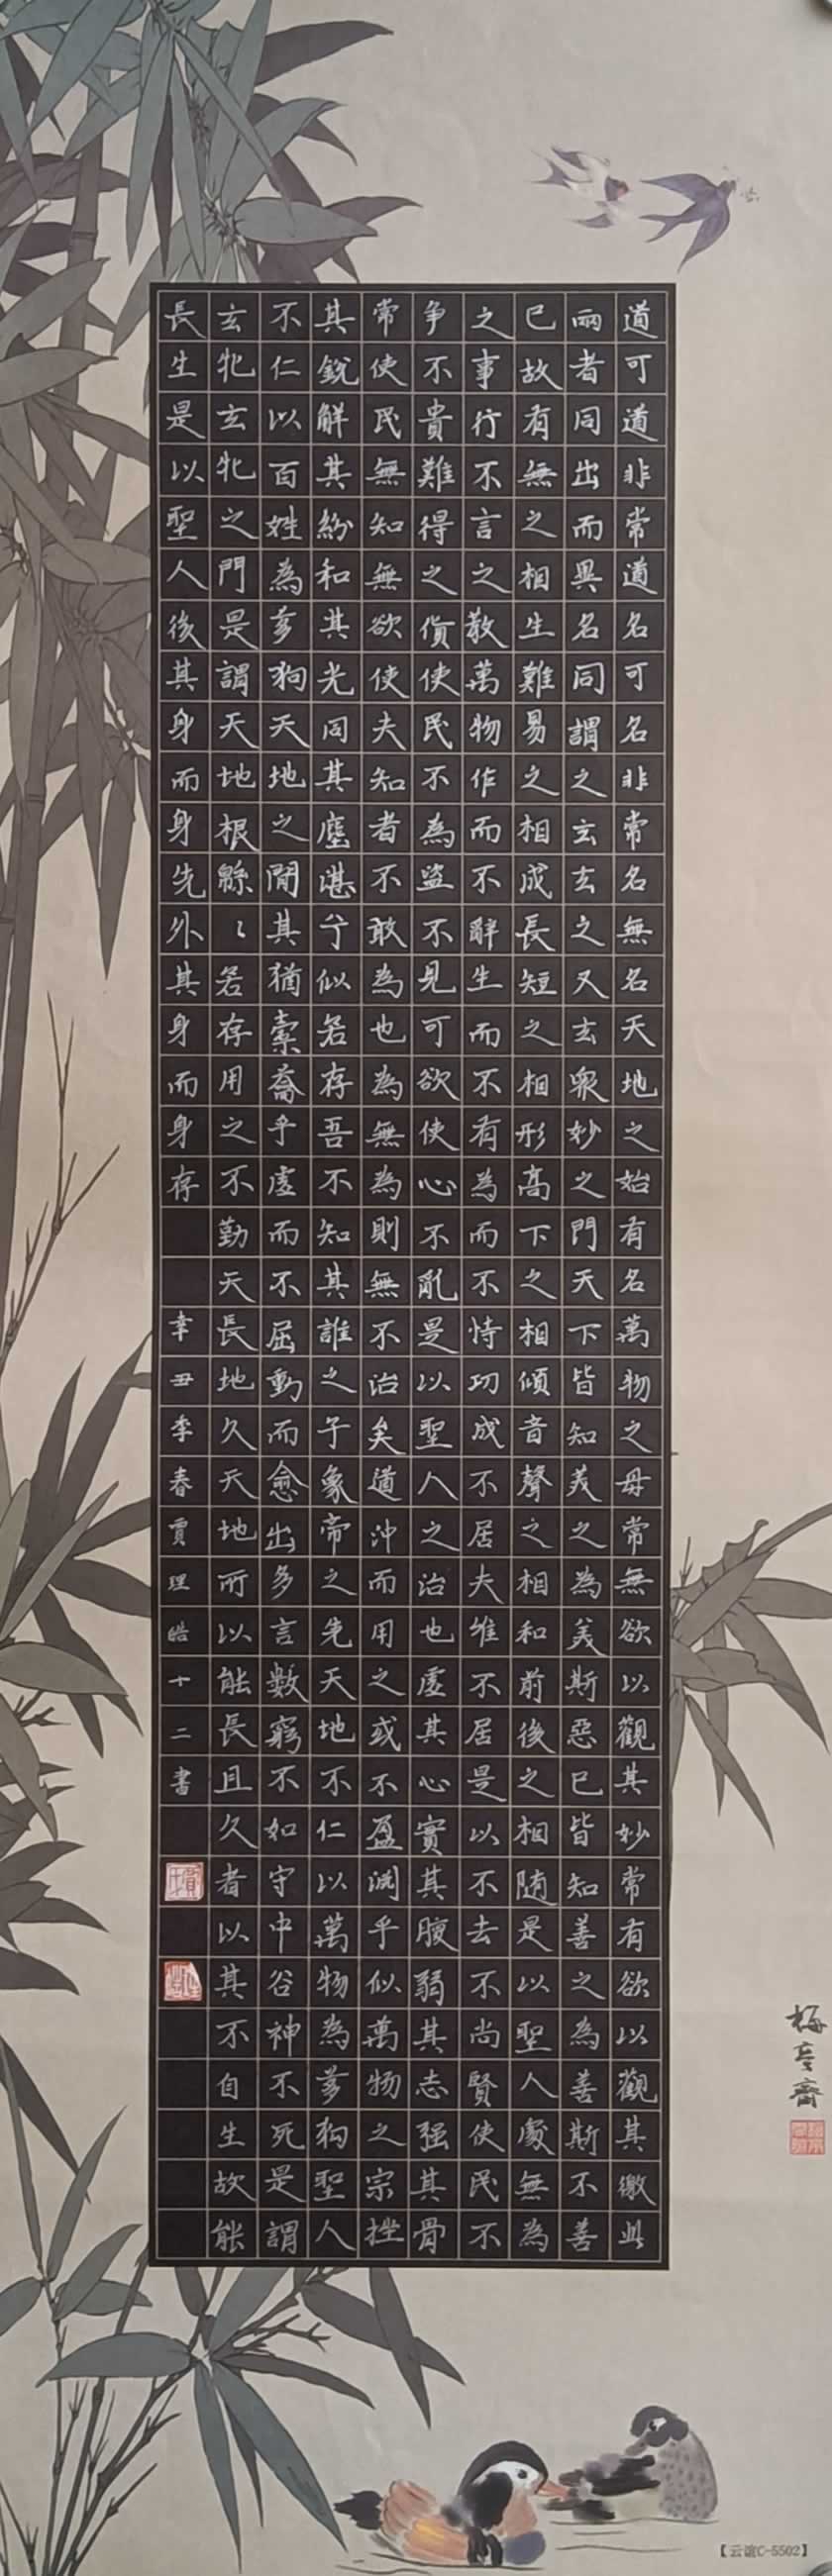 道可道非常道名可名非常名無名天地之始有名萬物之母常無欲以觀其妙常有欲以觀其徼此
兩者同出而異名同謂之玄玄之又玄衆妙之門天下皆知美之為美斯惡已皆知善之為善斯不善
已故有無之相生難易之相成長短之相形高下之相傾音聲之相和前後之相随是以聖人處無為
之事行不言之教萬物作而不辭生而不有為而不恃功成不居夫维不居是以不去不尚賢使民不
争不貴難得之貨使民不為盜不見可欲使心不亂是以聖人之治也虛其心實其腹弱其志强其骨
常使民無知無欲使夫知者不敢為也為無為則無不治矣道沖而用之或不盈淵乎似萬物之宗挫
其銳解其紛和其光同其塵湛兮似若存吾不知其誰之子象帝之先天地不仁以萬物為芻狗聖人
不仁以百姓為芻狗天地之間其猶橐籥乎虛而不屈動而愈出多言數窮不如守中谷神不死是謂
玄牝玄牝之門是謂天地根緜〻若存用之不勤天長地久天地所以能長且久者以其不自生故能
長生是以聖人後其身而身先外其身而身存 辛丑季春賈理皓十二書
梅亭齋
【云谊C-5502】